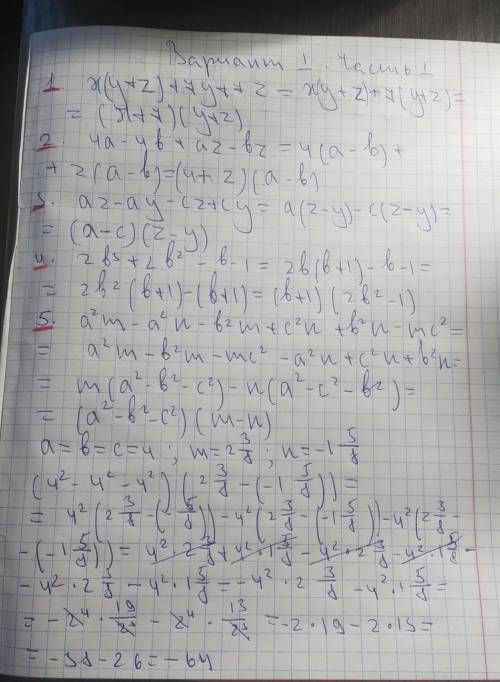 Вариант 1. Часть 1
1. x(y+z)+7y+7z = x(y+z)+7(y+z)=
= (x+7)(y+z)
2. 4a-4b+az-bz=4(a-b)+
+z(a-b)=(4+z)(a-b)
3. az-ay-cz+cy=a(z-y)-c(z-y)=
=(a-c)(z-y)
4. 2b³+2b²-b-1=2b(b+1)-b-1=
=2b²(b+1)-(b+1)=(b+1)(2b²-1)
5. a²m-a²n-b²m+c²n+b²n-mc²=
= a²m-b²m-mc²-a²n+c²n+b²n=
= m(a²-b²-c²)-n(a²-c²-b²)=
= (a²-b²-c²)(m-n)
a=b=c=4; m=2 3/8; n=-1 5/8
(4²-4²-4²)(2 3/8-(-1 5/8))=
= 4²(2 3/8-(-5/8))-4²(2 3/8-(-1 5/8))-4²(2 3/8-
-(-1 5/8))=4²·2 3/8+4²·1 5/8-4²·2 3/8-4²·1 5/8-
-4²·2 3/8-4²·1 5/8=-4²·2 3/8-4²·1 5/8=
=-2⁴·19/2³-2⁴·13/2³=-2·19-2·13=
=-38-26=-64